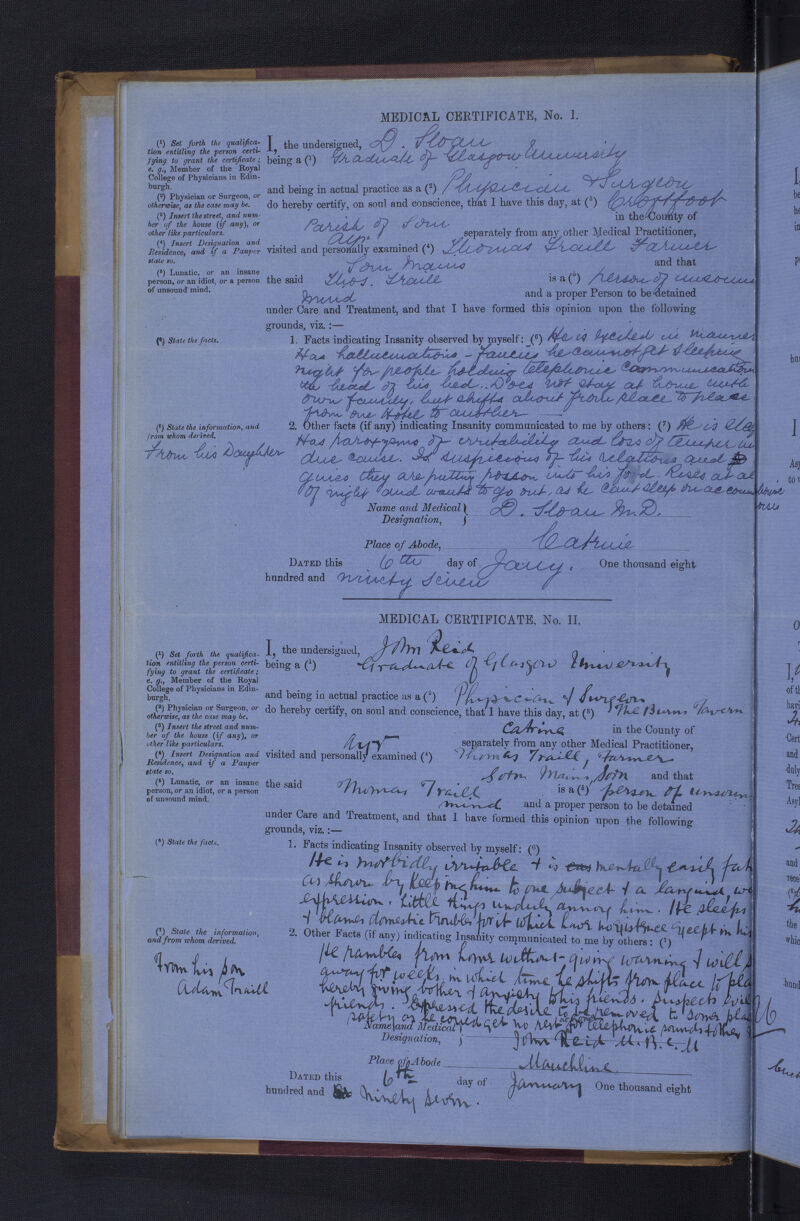 MEDICAL CERTIFICATE, No. I.
(1) Set forth the qualifica-
tion entitling the person certi-
fying to grant the certificate;
e. g., Member of the Royal
College of Physicians in Edin-
burgh.
(2) Physician or Surgeon, or
otherwise, as the case may be.
(3) Insert the street, and num-
ber of the house (if any), or
other like particulars.
(4) Insert Designation and
Residence, and if a Pauper
state so.
(5) Lunatic, or an insane
person, or an idiot, or a person
of unsound mind.
I, the undersigned, D. Sloan
being a (1) Graduate of Glasgow University
and being in actual practice as a (2) Physician & Surgeon
do hereby certify, on soul and conscience, that I have this day, at (3)
Parish of Sorn in the County of
Ayr separately from any other Medical Practitioner,
visited and personally examined (4) Thomas Traill Farmer
Sorn Mains and that
the said Thos. Traill is a (5) person of unsoun
mind and a proper Person to be detained
under Care and Treatment, and that I have formed this opinion upon the following
grounds, viz. :—
(6) State the facts.
1. Facts indicating Insanity observed by myself: (6) He is excited in manner
Has hallucinations - fancies he cannot get sleeping
night for people holding telephonic communication
head of his bed. Does not stay at home with
own family, but shifts about from place to place
from one Hotel to another
(7) State the information, and
from whom derived.
From his Daughter
2. Other facts (if any) indicating Insanity communicated to me by others: (7) He is
Has paroxysms of irritability and loss of temper
due cause. Is suspicious of his relations and
they are putting poison into his food Rises at al
of night and wants to go out, as he cant sleep on accoun
Name and Medical Designation, D. Sloan M.D.
Place of Abode, Catrine
DATED this 6th day of Jany. One thousand eight
hundred and ninety seven
MEDICAL CERTIFICATE, No. II.
(1) Set forth the qualifica-
tion entitling the person certi-
fying to grant the certificate;
e. g., Member of the Royal
College of Physicians in Edin-
burgh.
(2) Physician or Surgeon, or
otherwise, as the case may be.
(3) Insert the street and num-
ber of the house (if any), or
other like particulars.
(4) Insert Designation and
Residence, and if a Pauper
state so.
(5) Lunatic, or an insane
person, or an idiot, or a person
of unsound mind.
I, the undersigned, John Reid
being a (1) Graduate of Glasgow University
and being in actual practice as a (2) Physician & Surgeon
do hereby certify, on soul and conscience, that I have this day, at (3) The Burns Tavern
Catrine in the County of
Ayr separately from any other Medical Practitioner,
visited and personally examined (4) Thomas Traill, farmer
Sorn Mains, Sorn and that
the said Thomas Traill is a (5) person of unsoun
mind and a proper person to be detained
under Care and Treatment, and that I have formed this opinion upon the following
grounds, viz. :—
(6) State the facts.
1. Facts indicating Insanity observed by myself: (6)
He is morbidly irritable & is mentally easily fat
as shown by keeping him to one subject & a languid, we
expression. Little things unduly annoy him. He sleeps
& blames domestic troubles for it which have no existence except in his
(7) State the information,
and from whom derived.
From his son
Adam Traill
2. Other Facts (if any) indicating Insanity communicated to me by others: (7)
He rambles from home without giving warning & will s
away for weeks, in which time he shifts from place to pla
hereby giving bother & anxiety to his friends. Suspects
friends. Expressed the desire to be removed to some pla
safety as he could get no rest for telephonic sounds & other
Name and Medical Designation, John Reid M.B.C.M
Place of Abode Mauchline
DATED this 6th day of January One thousand eight
hundred and ninety seven.